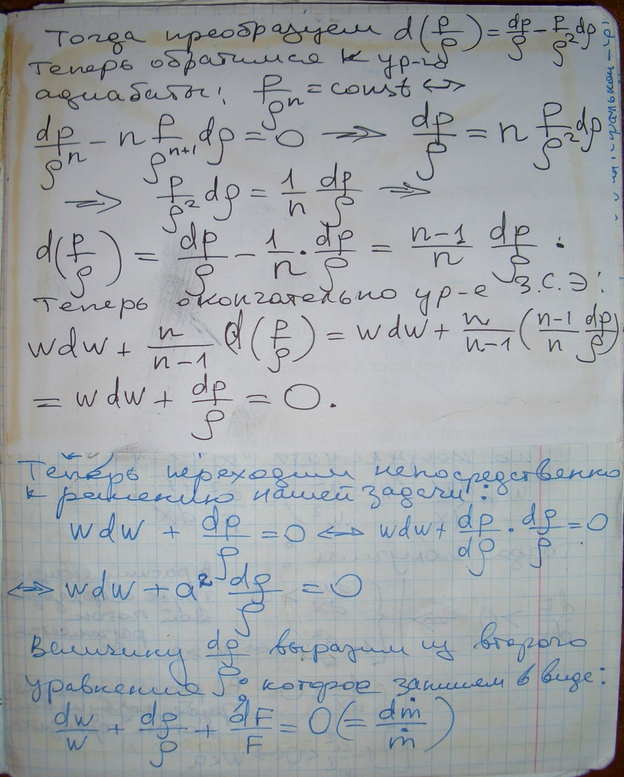 Тогда преобразуем d(p/ρ) = dp/ρ - p/ρ² dρ
Теперь обратимся к ур-ю
адиабаты: p/ρⁿ = const <->
dp/ρⁿ - n p/ρⁿ⁺¹ dρ = 0 => dp/ρ = n p/ρ² dρ
=> p/ρ² dρ = 1/n dp/ρ =>
d(p/ρ) = dp/ρ - 1/n · dp/ρ = n-1/n dp/ρ .
Теперь окончательно ур-е З.С.Э:
wdw + n/n-1 d(p/ρ) = wdw + n/n-1 (n-1/n dp/ρ)
= wdw + dp/ρ = 0.
Теперь переходим непосредственно
к решению нашей задачи:
wdw + dp/ρ = 0 <=> wdw + dp/dρ · dρ/ρ = 0
<=> wdw + a² dρ/ρ = 0
Величину dρ/ρ выразим из второго
уравнения, которое запишем в виде:
dw/w + dρ/ρ + dF/F = 0 (= dṁ/ṁ)